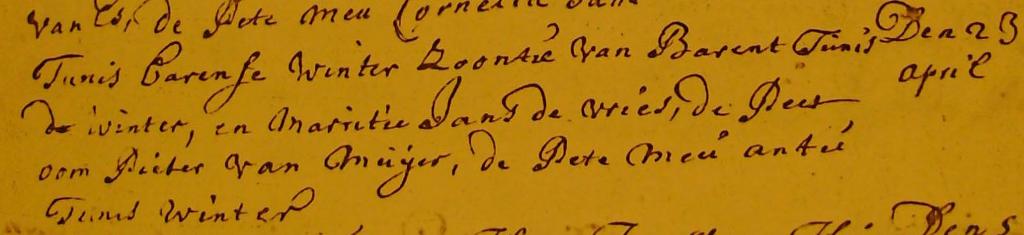 van es, de Pete meu Cornelia Jans
Tunis barense winter Zoontie van Barent Tunis Den 23
de winter, en Marritie Jans de vries, de Peet april
oom Pieter van Meijer, de Pete meu antie
Tunis winter
Den 5